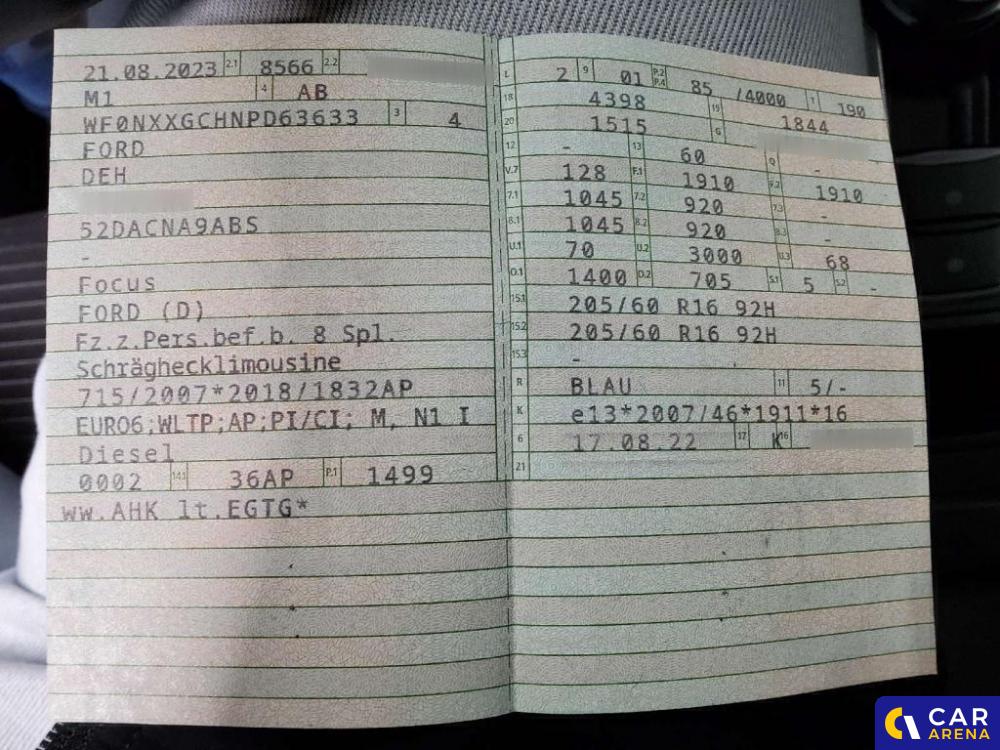 21.08.2023 2.1 8566 2.2
M1 4 AB
WF0NXXGCHNPD63633 3 4
FORD
DEH
52DACNA9ABS
-
Focus
FORD (D)
Fz.z.Pers.bef.b. 8 Spl.
Schräghecklimousine
715/2007*2018/1832AP
EURO6;WLTP;AP;PI/CI; M, N1 I
Diesel
0002 14.1 36AP P.1 1499
ww.AHK lt.EGTG*
L 2 9 01 P.2 P.4 85 /4000 T 190
18 4398 19 1844
20 1515 G
12 - 13 60 Q -
V.7 128 F.1 1910 F.2 1910
7.1 1045 7.2 920 7.3 -
8.1 1045 8.2 920 8.3 -
U.1 70 U.2 3000 U.3 68
O.1 1400 O.2 705 S.1 5 S.2 -
15.1 205/60 R16 92H
15.2 205/60 R16 92H
15.3 -
R BLAU 11 5/-
K e13*2007/46*1911*16
6 17.08.22 17 K 16
21
CAR
ARENA